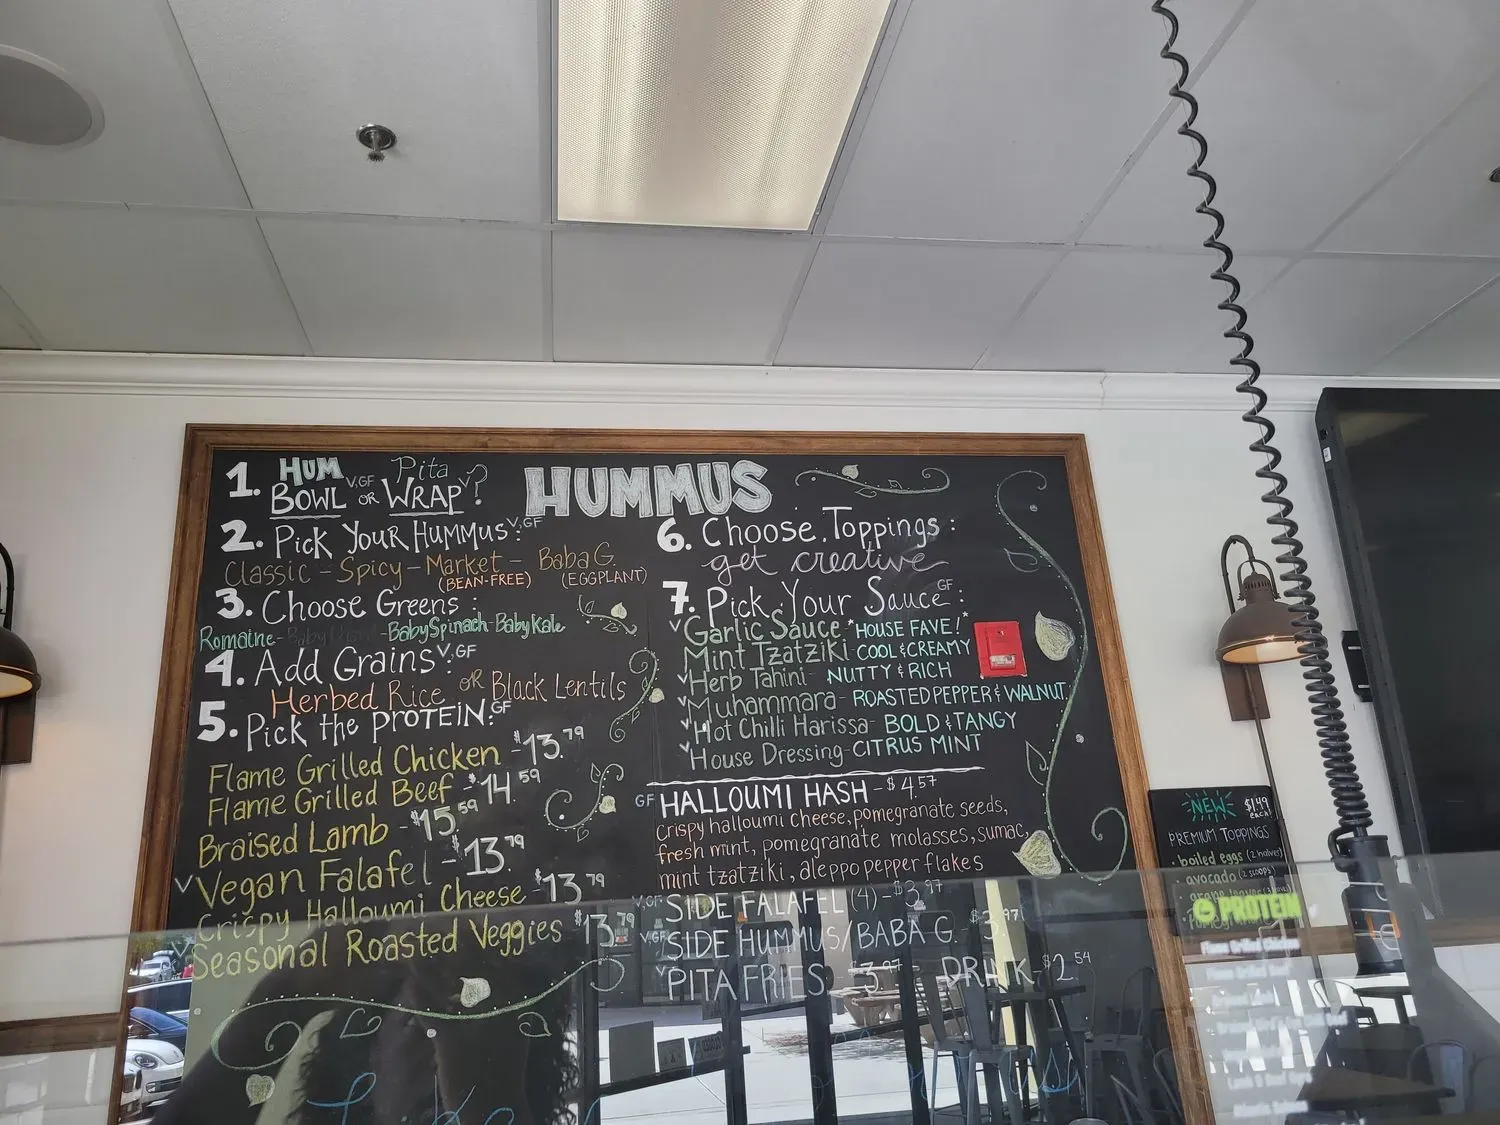 HUMMUS
1. HUM Pita
BOWL V,GF OR WRAP V?
2. Pick Your Hummus V,GF:
Classic - Spicy - Market - Baba G.
(BEAN-FREE) (EGGPLANT)
3. Choose Greens:
Romaine - Baby Spinach - Baby Kale
4. Add Grains V,GF:
Herbed Rice OR Black Lentils
5. Pick the PROTEIN: GF
Flame Grilled Chicken - $13.79
Flame Grilled Beef - $14.59
Braised Lamb - $15.59
V Vegan Falafel - $13.79
Crispy Halloumi Cheese - $13.79
V Seasonal Roasted Veggies $13.79
6. Choose Toppings:
get creative
7. Pick Your Sauce GF:
V Garlic Sauce *HOUSE FAVE!*
Mint Tzatziki - COOL & CREAMY
V Herb Tahini - NUTTY & RICH
V Muhammara - ROASTED PEPPER & WALNUT
V Hot Chilli Harissa - BOLD & TANGY
V House Dressing - CITRUS MINT
GF HALLOUMI HASH - $4.57
crispy halloumi cheese, pomegranate seeds,
fresh mint, pomegranate molasses, sumac,
mint tzatziki, aleppo pepper flakes
V,GF SIDE FALAFEL (4) - $3.97
V,GF SIDE HUMMUS/BABA G. - $3.97
V PITA FRIES $3.97 DRINK - $2.54
NEW $1.49 each!
PREMIUM TOPPINGS
• boiled eggs (2 halves)
• avocado (2 scoops)
PROTEIN